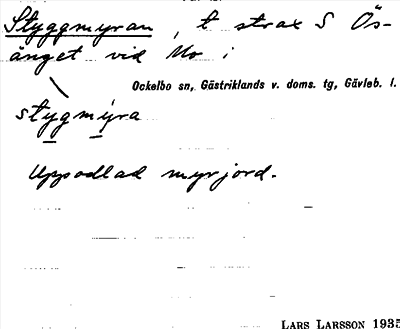 Styggmyran, t strax S Ös-
änget vid Mo i
Ockelbo sn, Gästriklands v. doms. tg, Gävleb. l.
stygmýra
Uppodlad myrjord.
LARS LARSSON 1935